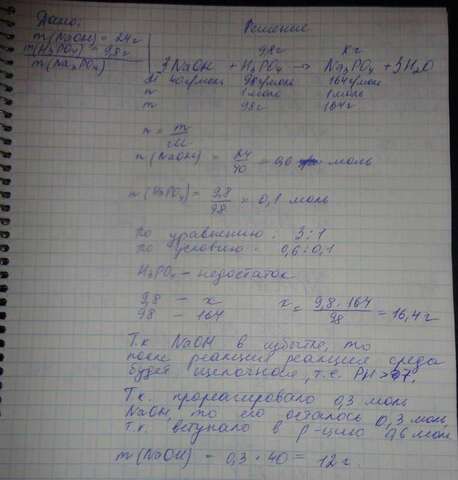 Дано:
Решение
m(NaOH) = 24г
m(H3PO4) = 9,8г
m(Na3PO4)
9,8г xг
3NaOH + H3PO4 → Na3PO4 + 3H2O
M 40г/моль 98г/моль 164г/моль
n 1моль 1моль
m 98г 164г
n = m/M
n(NaOH) = 24/40 = 0,6 моль
n(H3PO4) = 9,8/98 = 0,1 моль
по уравнению: 3:1
по условию - 0,6:0,1
H3PO4 - недостаток
9,8 - x x = 9,8·164/98 = 16,4г
98 - 164
Т.к NaOH в избытке, то
после реакции реакция среда
будет щелочная, т.е. PH>7.
Т.к. прореагировало 0,3 моль
NaOH, то его осталось 0,3 моль,
т.к. вступало в р-цию 0,6 моль
m(NaOH) = 0,3·40 = 12г.